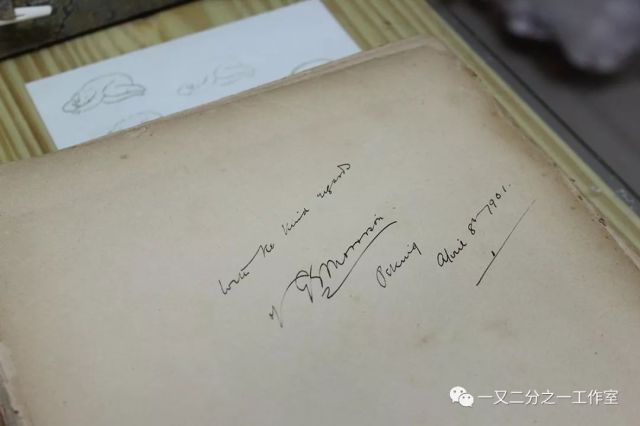 with the kind regards
of G E Morrison
Peking
April 8th 1901.
一又二分之一工作室